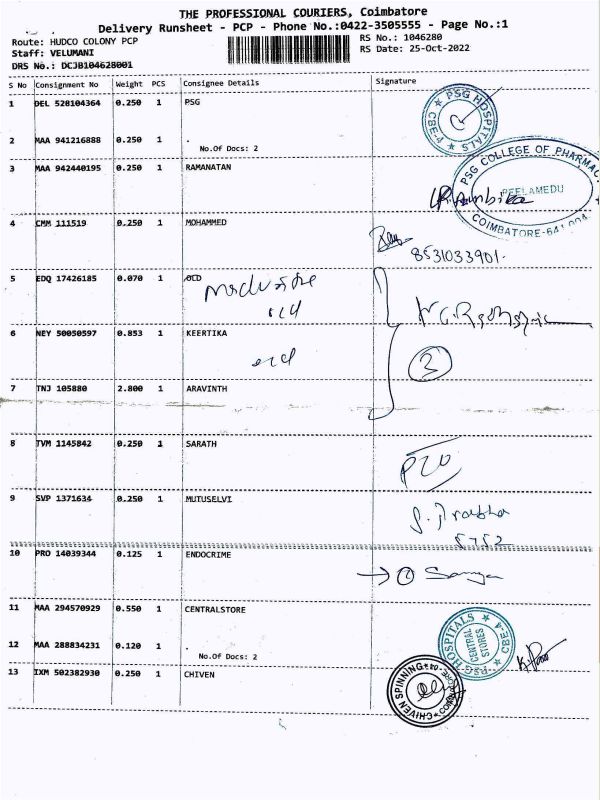 THE PROFESSIONAL COURIERS, Coimbatore
Delivery Runsheet - PCP - Phone No.:0422-3505555 - Page No.:1
Route: HUDCO COLONY PCP
RS No.: 1046280
Staff: VELUMANI
RS Date: 25-Oct-2022
DRS No.: DCJB104628001
S No Consignment No Weight PCS Consignee Details Signature
1 DEL 528104364 0.250 1 PSG
PSG HOSPITALS ★ CBE-4 ★
2 MAA 941216888 0.250 1 .
No.Of Docs: 2
3 MAA 942440195 0.250 1 RAMANATAN
PSG COLLEGE OF PHARMAC
PEELAMEDU
COIMBATORE-641 004
4 CMM 111519 0.250 1 MOHAMMED
8531033901.
5 EDQ 17426185 0.070 1 OCD
6 NEY 50050597 0.853 1 KEERTIKA
3
7 TNJ 105880 2.800 1 ARAVINTH
8 TVM 1145842 0.250 1 SARATH
9 SVP 1371634 0.250 1 MUTUSELVI
5752
10 PRO 14039344 0.125 1 ENDOCRIME
11 MAA 294570929 0.550 1 CENTRALSTORE
PSG HOSPITALS ★ CBE-4 ★
CENTRAL
STORES
12 MAA 288834231 0.120 1 .
No.Of Docs: 2
13 IXM 502382930 0.250 1 CHIVEN